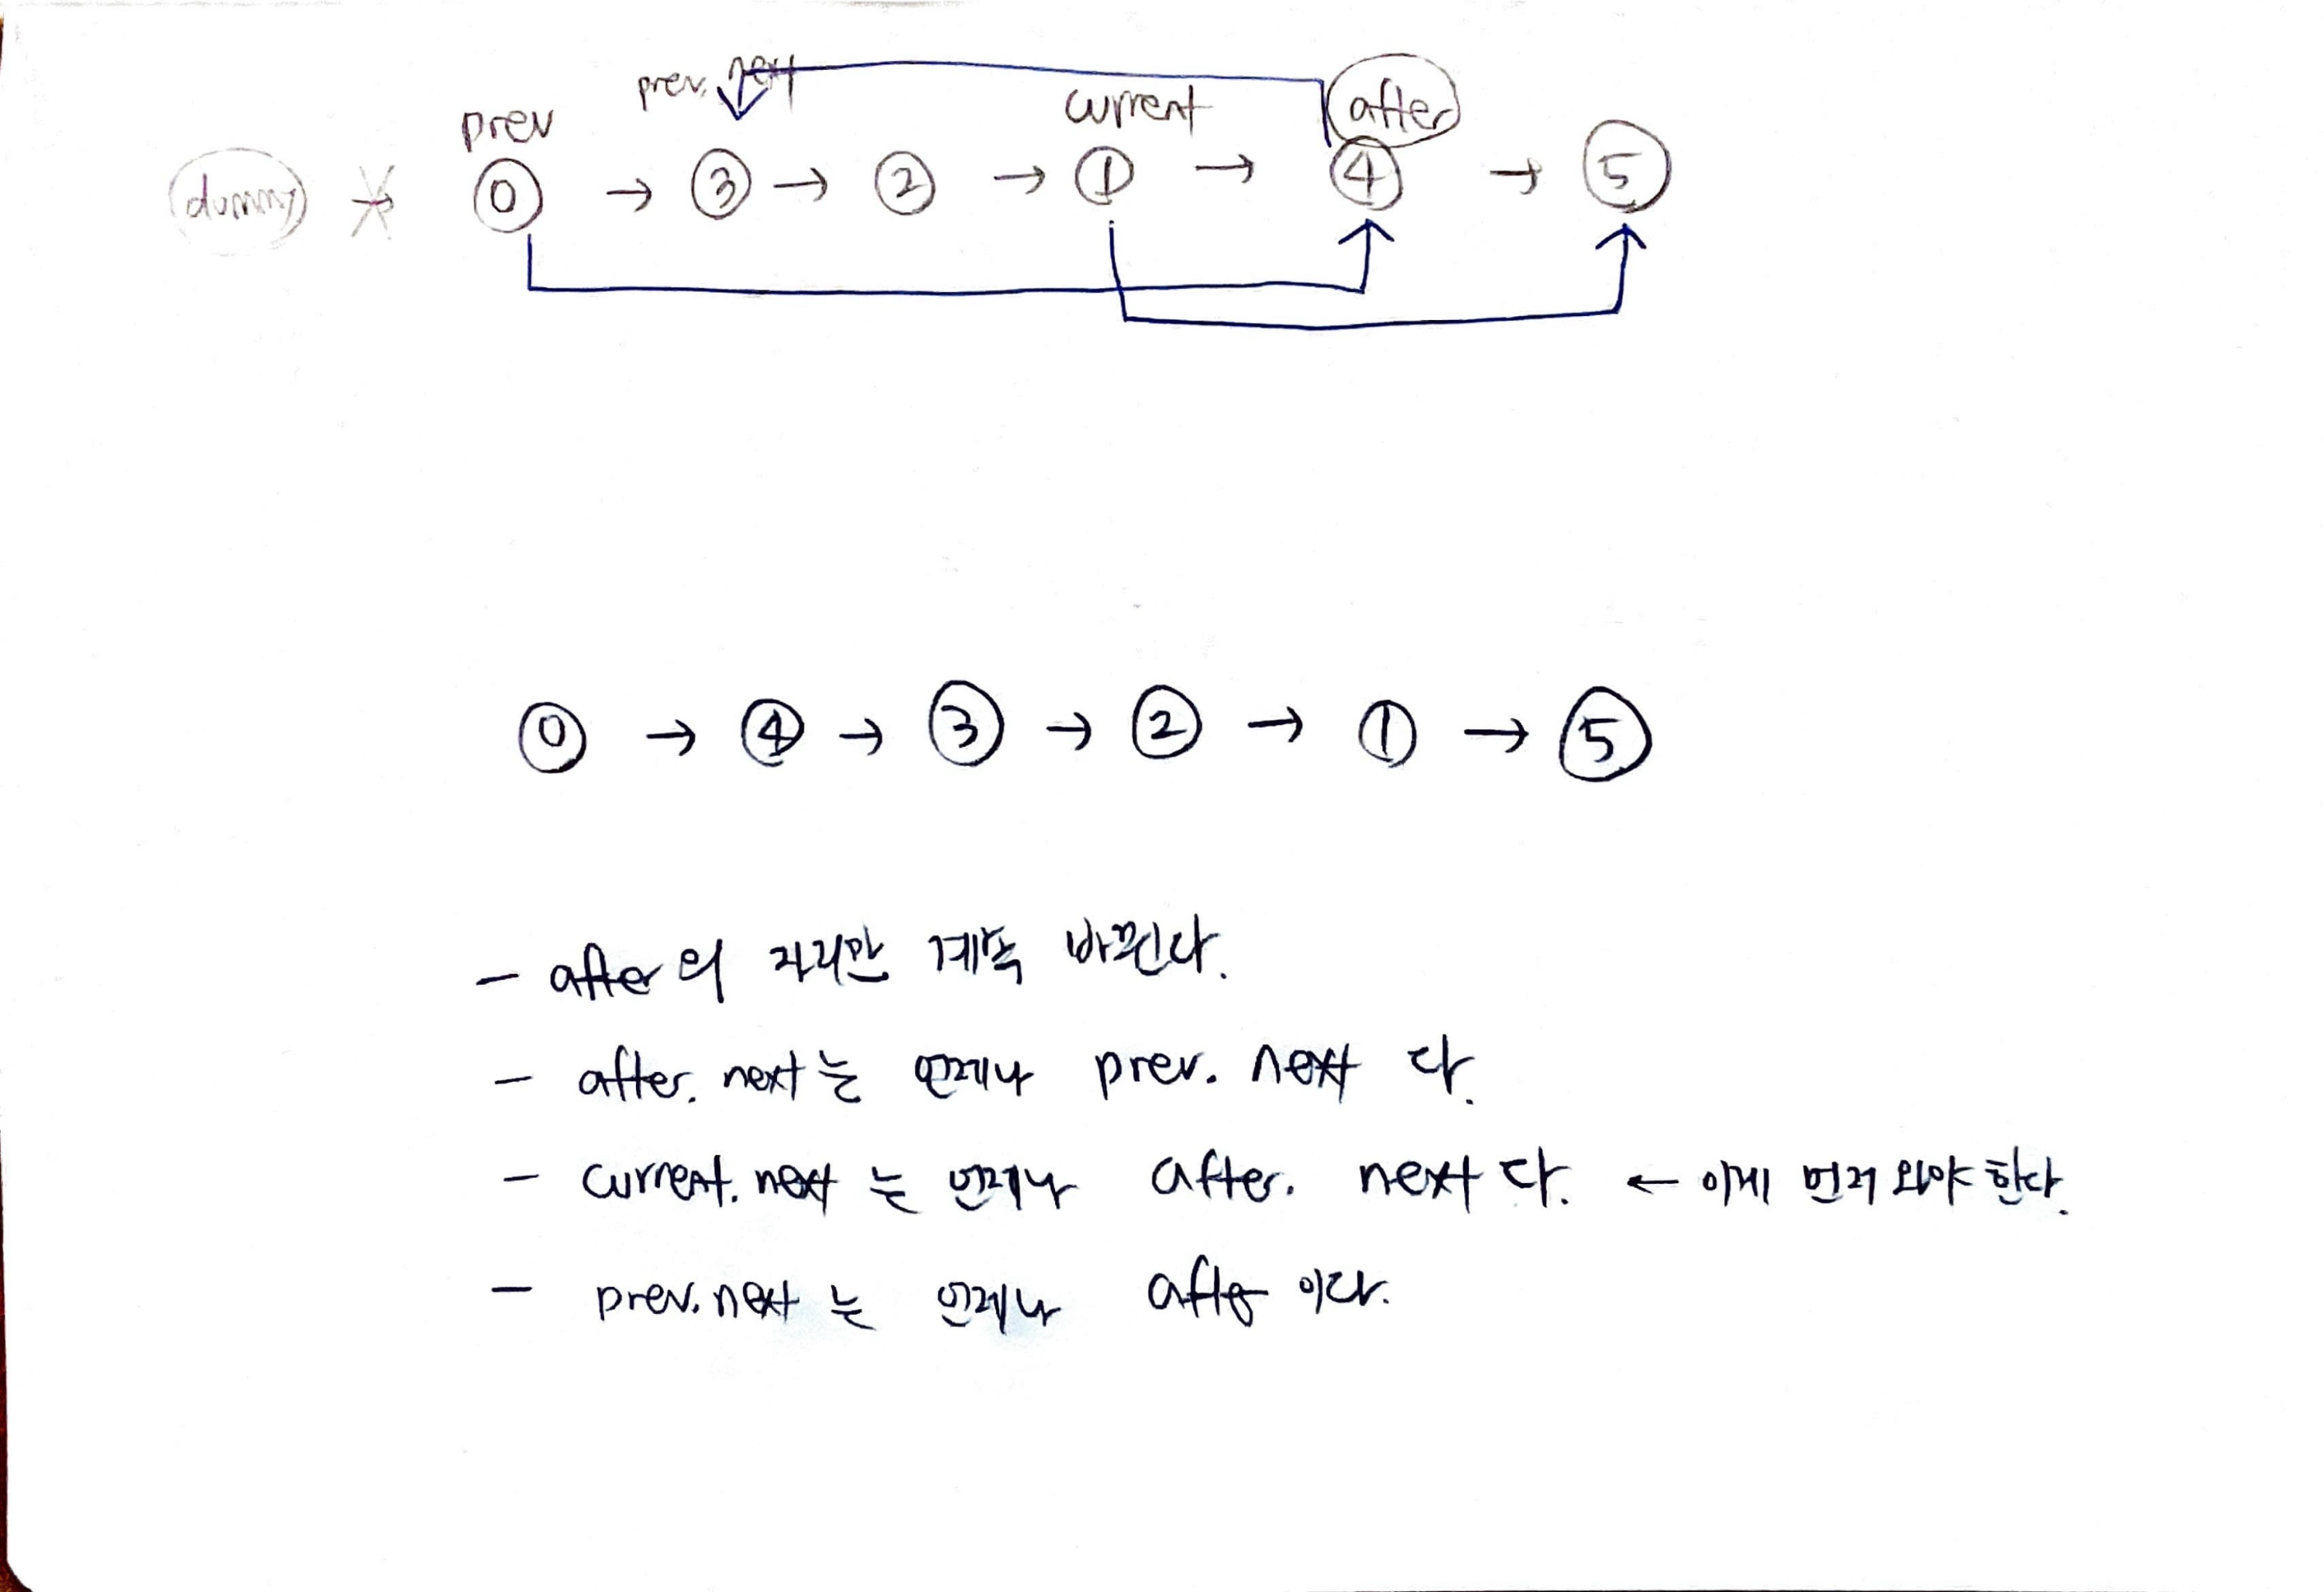 prev. next
prev current after
dummy → 0 → 3 → 2 → 1 → 4 → 5
0 → 4 → 3 → 2 → 1 → 5
- after의 자리만 계속 바뀐다.
- after. next는 언제나 prev. next 다.
- current. next 는 언제나 after. next 다. ← 이게 먼저 와야 한다.
- prev. next 는 언제나 after 이다.